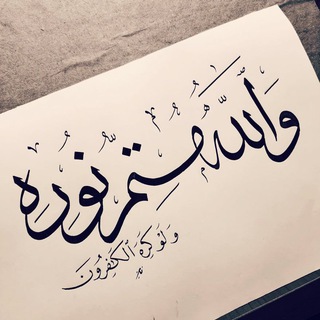 وَٱللَّهُ مُتِمُّ نُورِهِ
وَلَوْ كَرِهَ ٱلْكَٰفِرُونَ